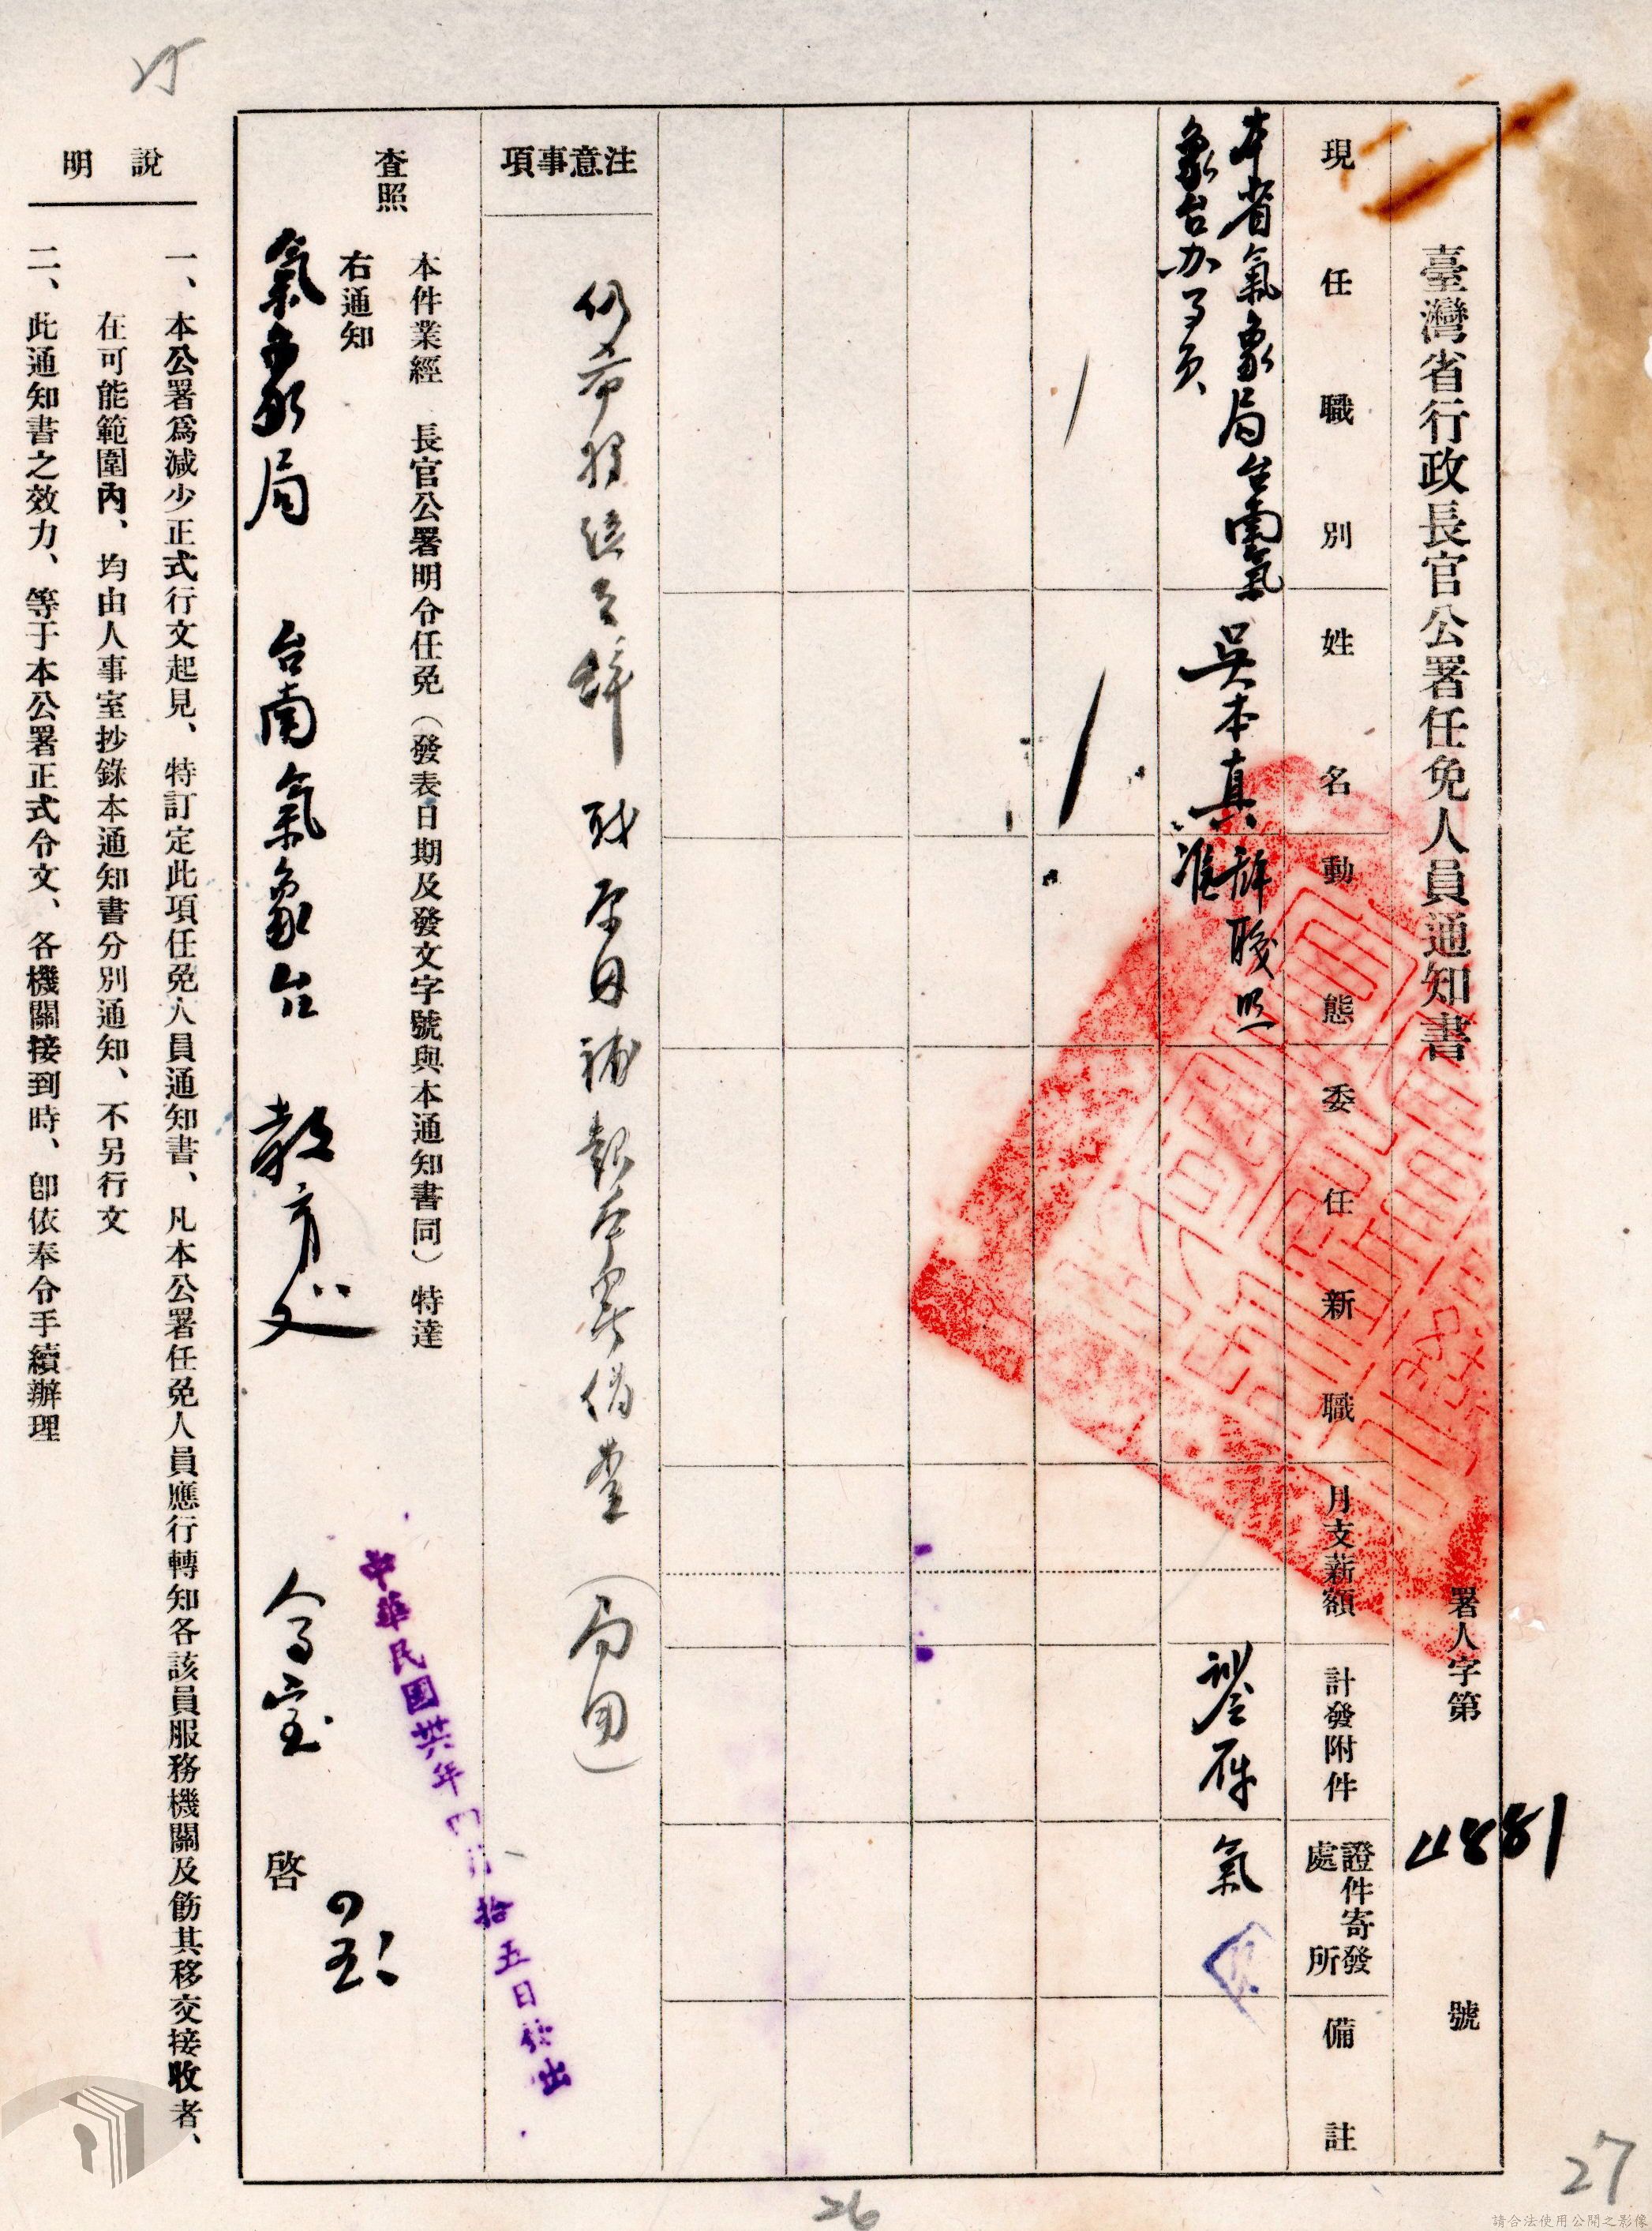 臺灣省行政長官公署任免人員通知書
署人字第 4881 號
現任職別
姓名
動態
委任新職
月支薪額
計發附件
證件寄發
處所
備註
本省氣象局台南氣
象台办事員
吳本真
辞职照
准
氣
注意事項
仍希將
辞职原因補報本署備查
本件業經 長官公署明令任免（發表日期及發文字號與本通知書同）特達
查照
右通知
氣象局 台南氣象台
啓
中華民國卅六年四月拾五日發出
說明
一、本公署爲減少正式行文起見、特訂定此項任免人員通知書、凡本公署任免人員應行轉知各該員服務機關及飭其移交接收者、
在可能範圍內、均由人事室抄錄本通知書分別通知、不另行文
二、此通知書之效力、等于本公署正式令文、各機關接到時、卽依奉令手續辦理
26
27
請合法使用公開之影像